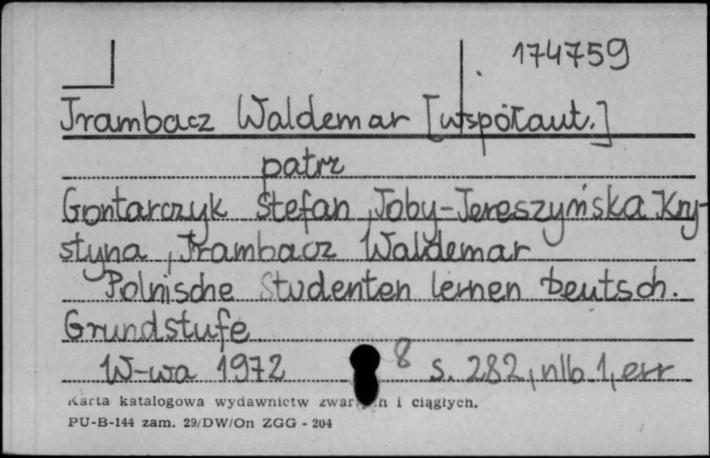 174759
Trambacz Waldemar [współaut.]
patrz
Gontarczyk Stefan, Toby-Jereszyńska Kry-
styna, Trambacz Waldemar
Polnische Studenten lernen Deutsch.
Grundstufe
W-wa 1972 8 s. 282, nlb. 1, err
Karta katalogowa wydawnictw zwar n i ciągłych.
PU-B-144 zam. 29/DW/On ZGG - 204